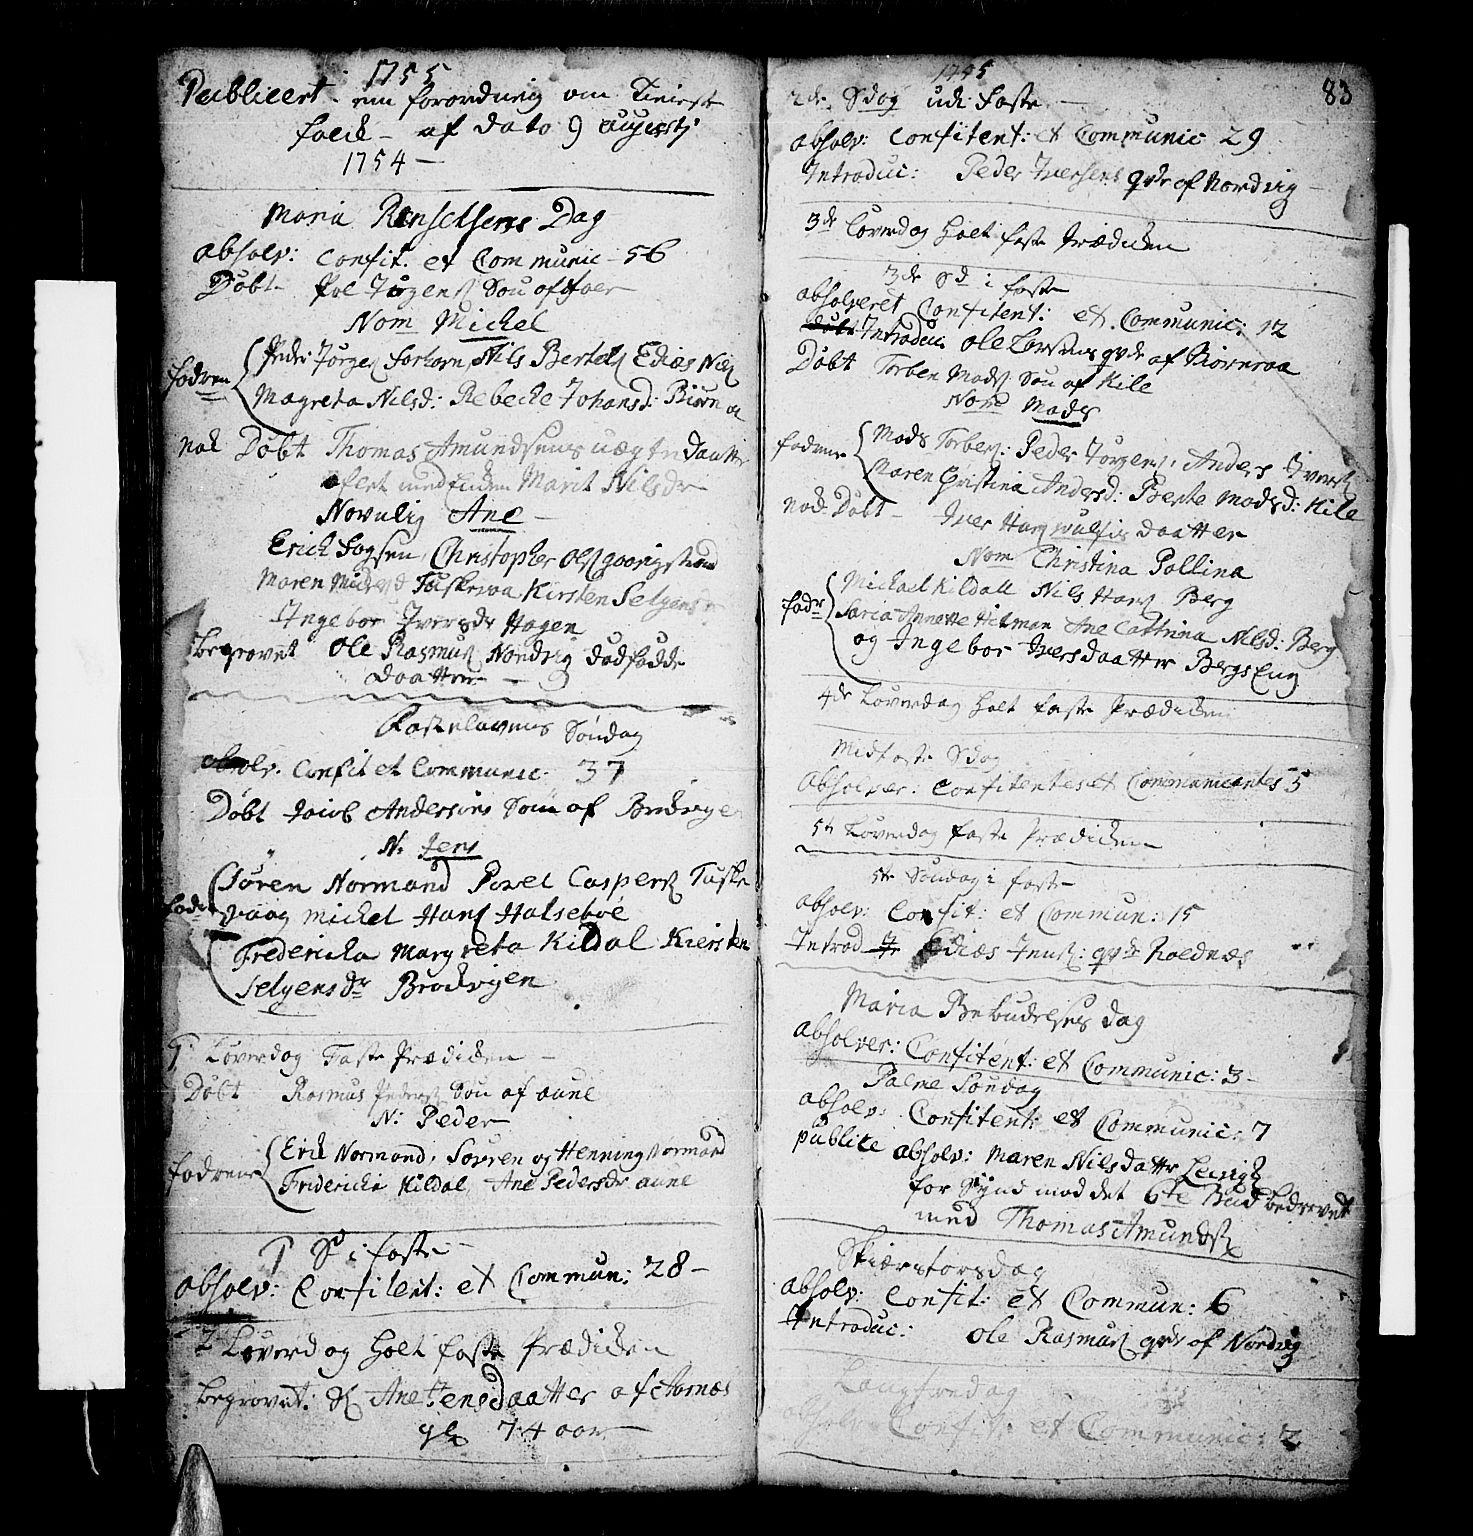 1755
Publicert em forordning om Tieniste
folck - af dato 9 augusti
1754 -
Maria Renselsens Dag
absolv: Confit: et Communic - 56
Døbt - Pol Jørgens Søn af
Nom Michel
fadren Peder Jørgens Nils Bertels Edias Nils
Magreta Nilsd: Rebecke Johansd:
nok Døbt Thomas Amundsens uægte daatter
aflet med Enken Marit Nilsdr
Navnlig Ane -
Erich Fogsen, Christopher Ols
Maren Tuskevaa Kirsten Selgensdr
Ingebor Iversdr Hagen
begravet Ole Rasmus Nordvig dødfødde
Daatter -
Fastelavens Søndag
absolv: Confit et Communic: 37
Døbt Jacob Andersøns Søn af Brodvigen
N: Jens
fadr Søren Normand Povel Caspers Tuske
vaag Michel Hans Halseboe
Fredericka Margreta Kildal Kiersten
Selgensdr Brodvigen
1 Løverdag Faste Prædicken -
Døbt Rasmus Peders Søn af aune
N: Peder
fadrene Erick Normand, Sørren og Henning Normand
Fridericka Kildal, Ane Pedersdr aune
1 Sd i faste -
absolv: Confitent: et Commun: 28 -
2 Løverdag holt faste Prædicken
begravet: Ane Jensdaatter af
gl 74 aar -
1755
83
2de Sdag udi Faste -
absolv: Confitent: et Communic 29
Introduc: Peder Iversens qvde af Nordvig -
3de Løverdag holt faste Prædicken
3de Sd i faste
absolveret Confitent: et Communic: 12
Introduc Ole Larsens qvde af Kiørsvaa
Døbt Torben Mads Søn af Kile
Nom Mads
fadrene Mads Torbens: Peder Jørgens: Anders Ivers
Maren Christina Andersd: Berte Madsd: Kile
nok Døbt - Iver Hans daatter
Nom Christina Pallina
fadr Michael Kildall Nils Hans Berg
Saria Annette Hitman Ane Cathrina Nilsd: Berg
og Ingebor Iversdaatter Bergs Eng
4de Løverdag holt faste Prædicken
Midfaste Sdag
Absolver: Confitentes et Communicantes 5
5te Løverdag faste Prædicken
5te Søndag i faste -
absolv: Confit: et Commun: 15
Introd Ediæs Jens: qvde Roednæs
Maria Bebudelses dag
absolver: Confitent: et Communic: 3 -
Palme Søndag
absolv: Confitent: et Communic: 7
publice absolv: Maren Nilsdatter
for Synd mod det 6te Bud bedrevet
med Thomas Amunds
Skiærtorsdag
absolv: Confit: et Commun: 6
Introduc: Ole Rasmus qvde af Nordvig
Langfredag
absolv: Confit: et Communic: 2